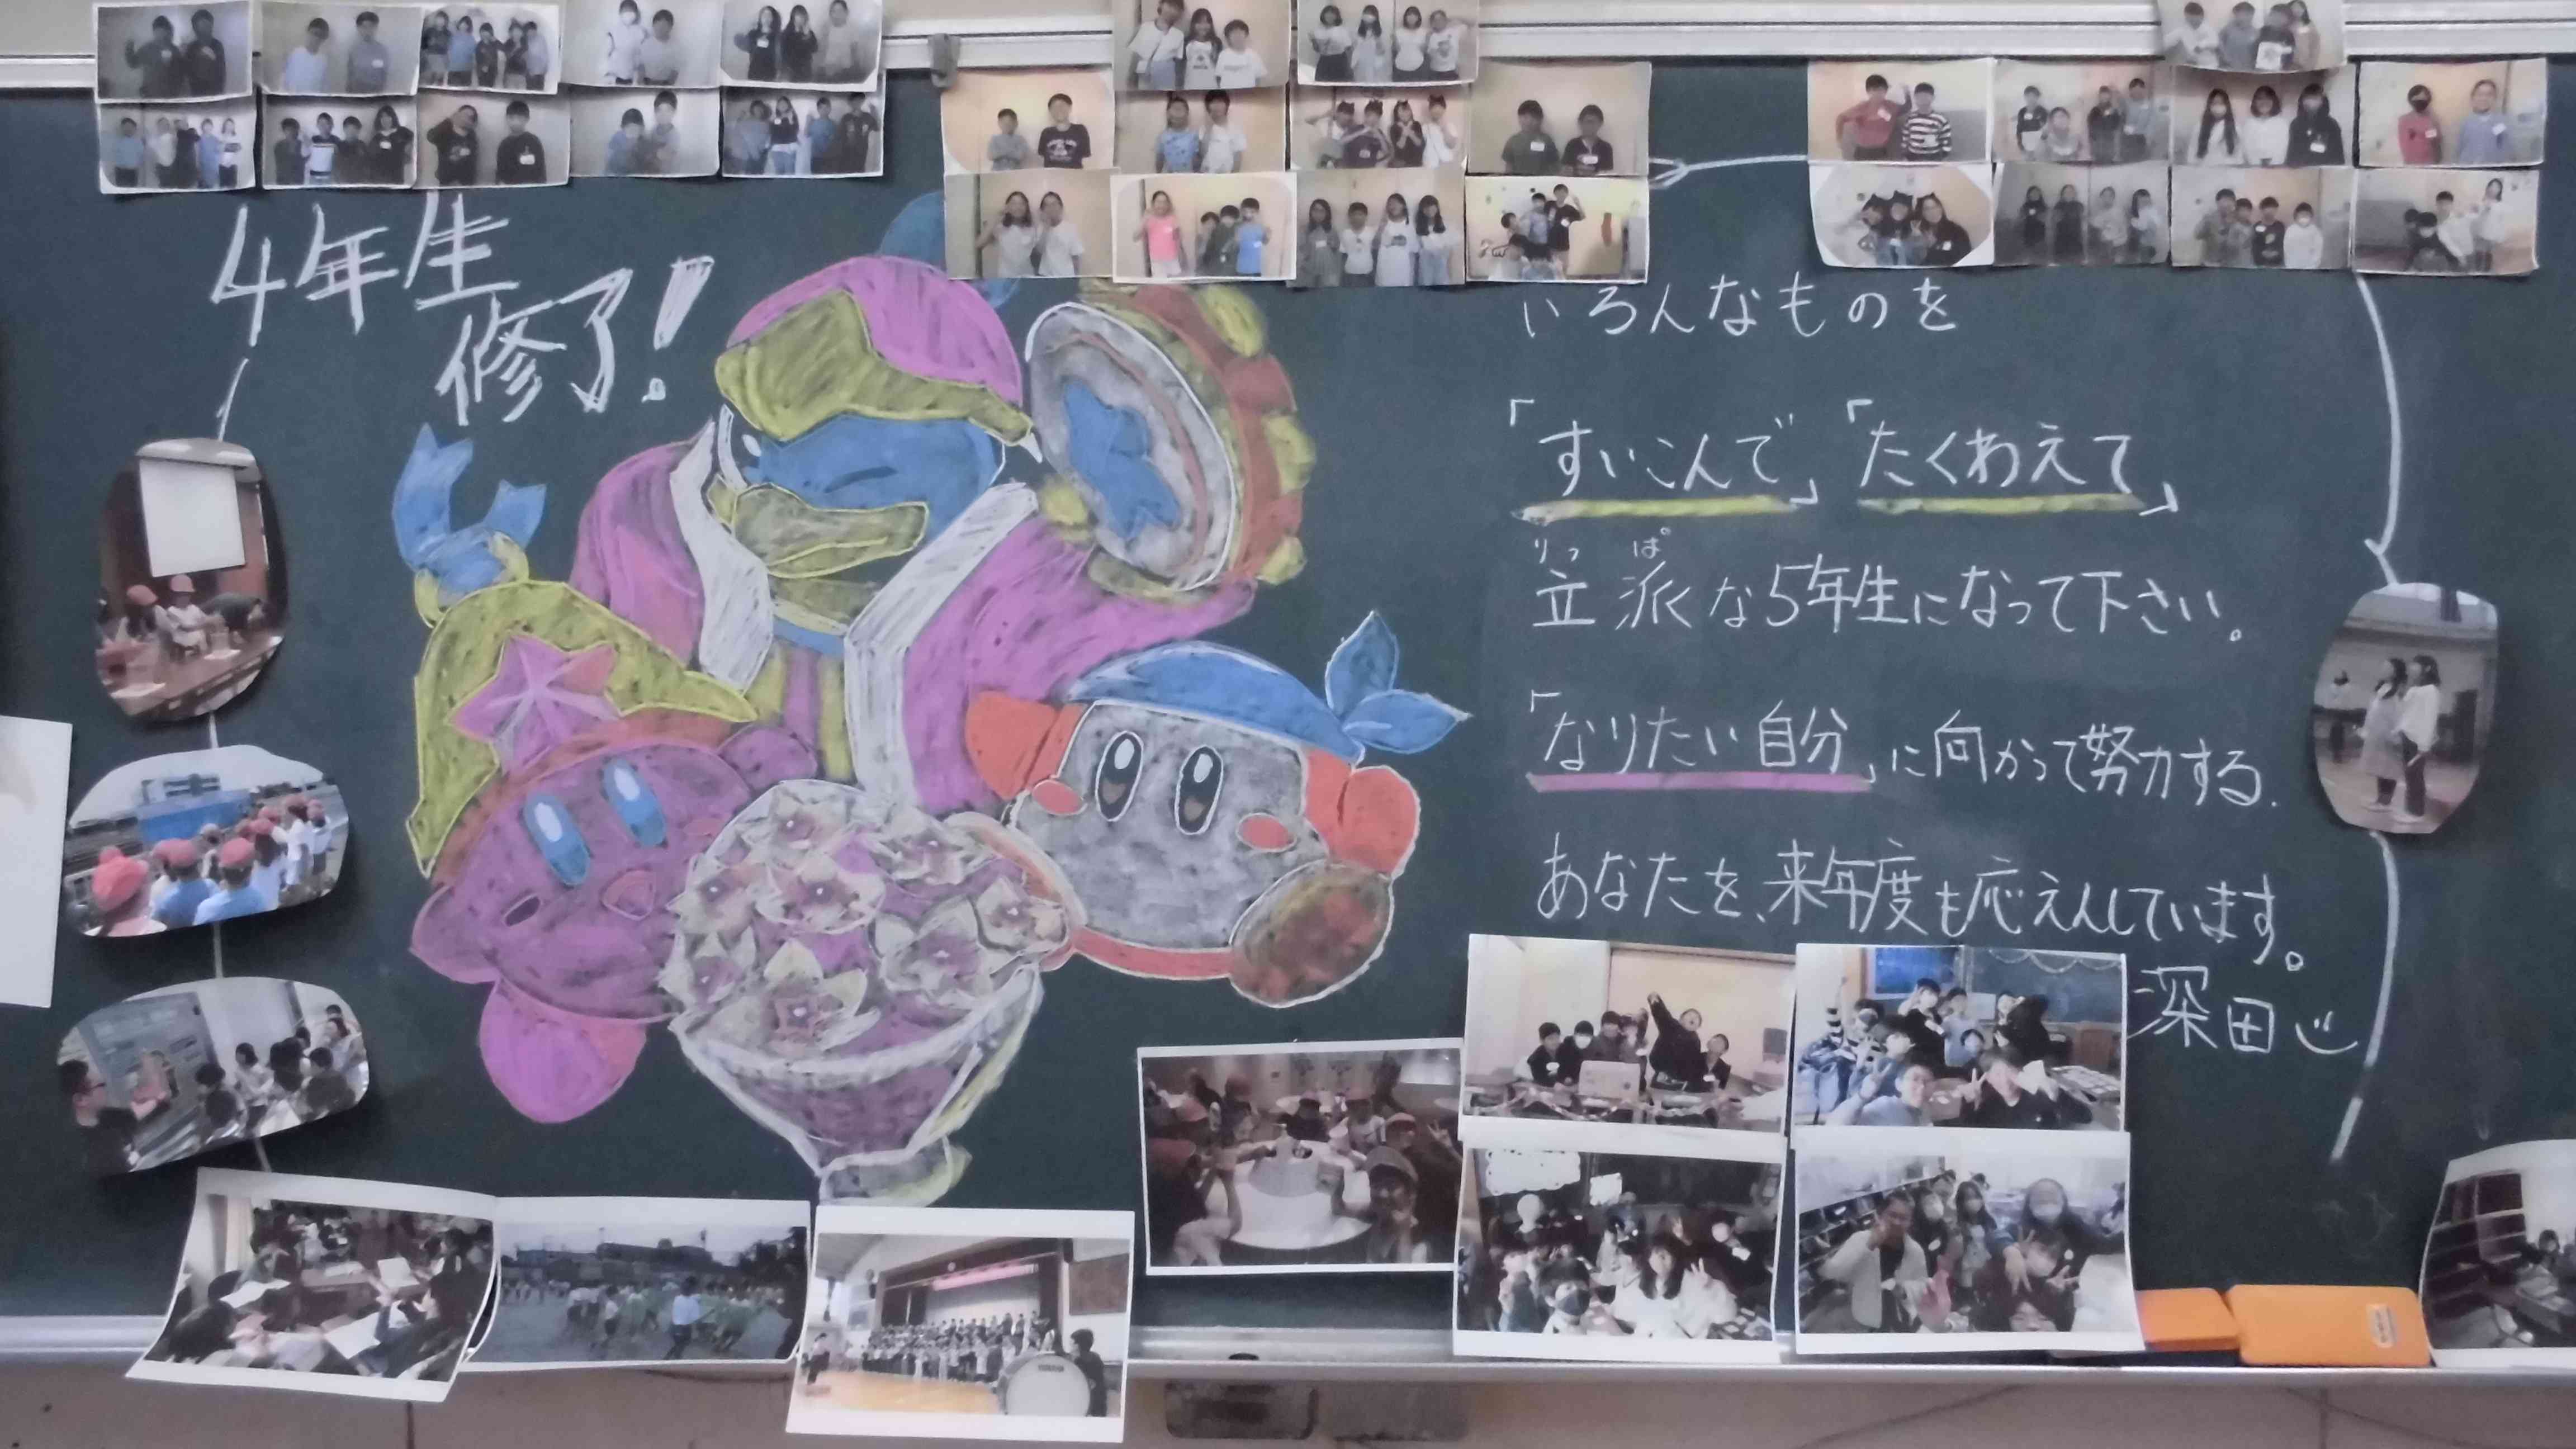 4年生
修了!
いろんなものを
「すいこんで」「たくわえて」
りっぱ
立派な5年生になって下さい。
「なりたい自分」に向かって努力する
あなたを、来年度も応えんしています。
深田